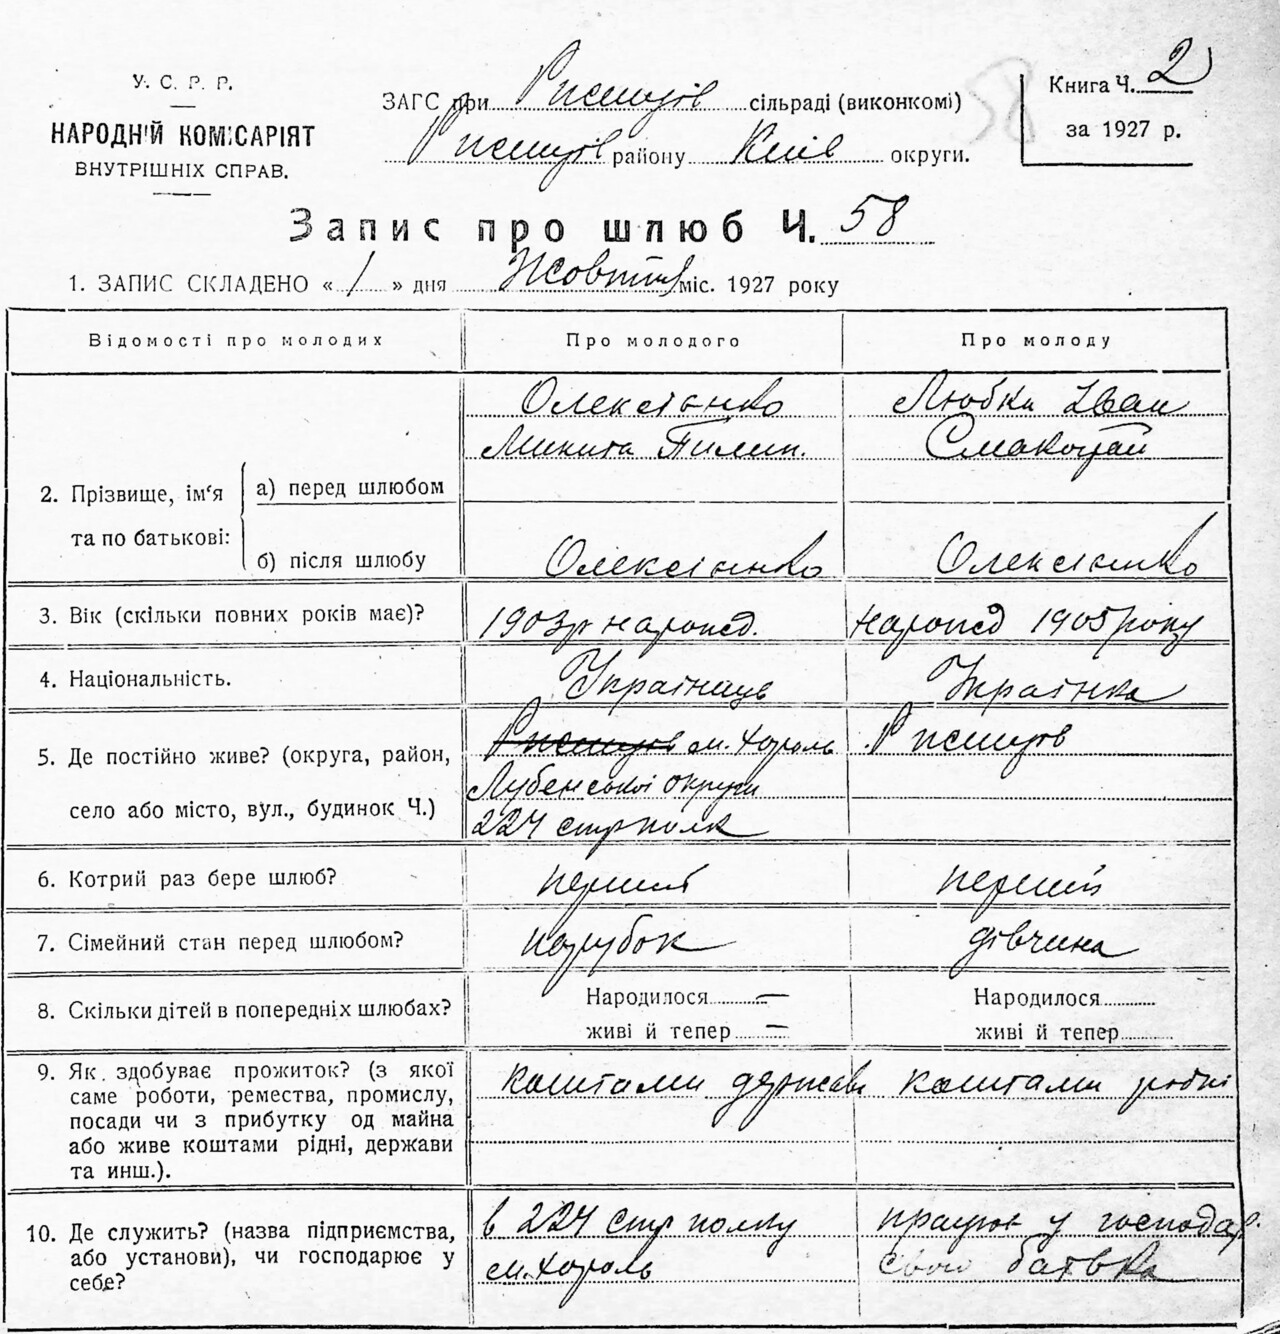 У. С. Р. Р.
НАРОДНІЙ КОМІСАРІЯТ
ВНУТРІШНІХ СПРАВ.
ЗАГС при Ржищів сільраді (виконкомі)
Ржищів району Київ округи.
Книга Ч. 2
за 1927 р.
Запис про шлюб Ч. 58
1. ЗАПИС СКЛАДЕНО « 1 » дня Жовтня міс. 1927 року
Відомості про молодих
Про молодого
Про молоду
2. Прізвище, ім'я та по батькові:
а) перед шлюбом
Олексієнко
Микита Пилип.
Любка Іван
Смакоцтай
б) після шлюбу
Олексієнко
Олексієнко
3. Вік (скільки повних років має)?
1903р народж.
народж 1905 року
4. Національність.
Українець
Українка
5. Де постійно живе? (округа, район,
село або місто, вул., будинок Ч.)
Ржищів м. Хороль
Лубенської округи
224 стр полк
Ржищів
6. Котрий раз бере шлюб?
перший
перший
7. Сімейний стан перед шлюбом?
парубок
дівчина
8. Скільки дітей в попередніх шлюбах?
Народилося —
живі й тепер —
Народилося
живі й тепер
9. Як здобуває прожиток? (з якої
саме роботи, ремества, промислу,
посади чи з прибутку од майна
або живе коштами рідні, держави
та инш.).
коштами держави
коштами рідні
10. Де служить? (назва підприємства,
або установи), чи господарює у
себе?
в 224 стр полку
м. Хороль
працює у господар.
свого батька